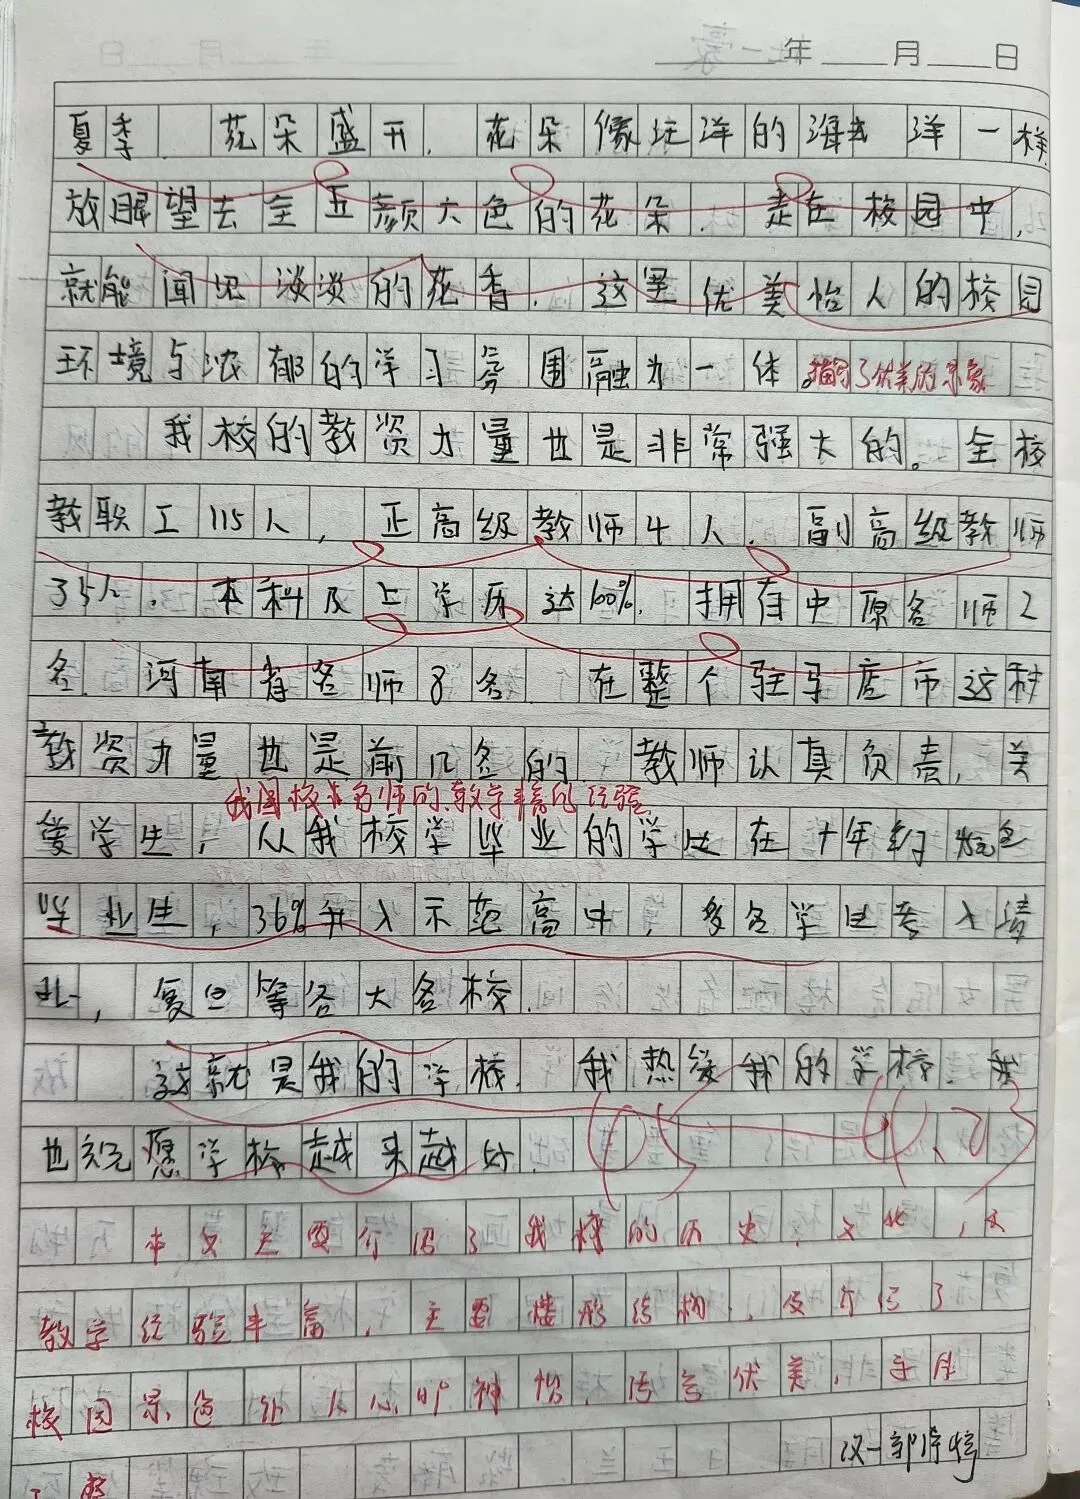 年 月 日
夏季 花朵盛开. 花朵像 洋的海 洋一样
放眼望去全 五颜六色的花朵. 走在校园中,
就能闻见淡淡的花香. 这里优美怡人的校园
环境与浓郁的学习氛围融为一体。描写了优美的景象
我校的教资力量也是非常强大的。全校
教职工115人, 正高级教师4人. 副高级教师
35人. 本科及上学历达100%. 拥有中原名师2
名. 河南省名师8名. 在整个驻马店市这种
教资力量也是前几名的. 教师认真负责, 关
我国校 名师的教学丰富的经验
爱学生, 从我校学毕业的学生在十年
毕业生, 36%升入示范高中, 多名学生考入清
华, 复旦等各大名校.
这就是我的学校. 我热爱我的学校. 我
也祝愿学校越来越好.
本文主要介绍了我校的历史, 文化,
教学经验丰富, 主要楼形结构, 及介绍了
校园景色让人心旷神怡, 语言优美,
汉一郭